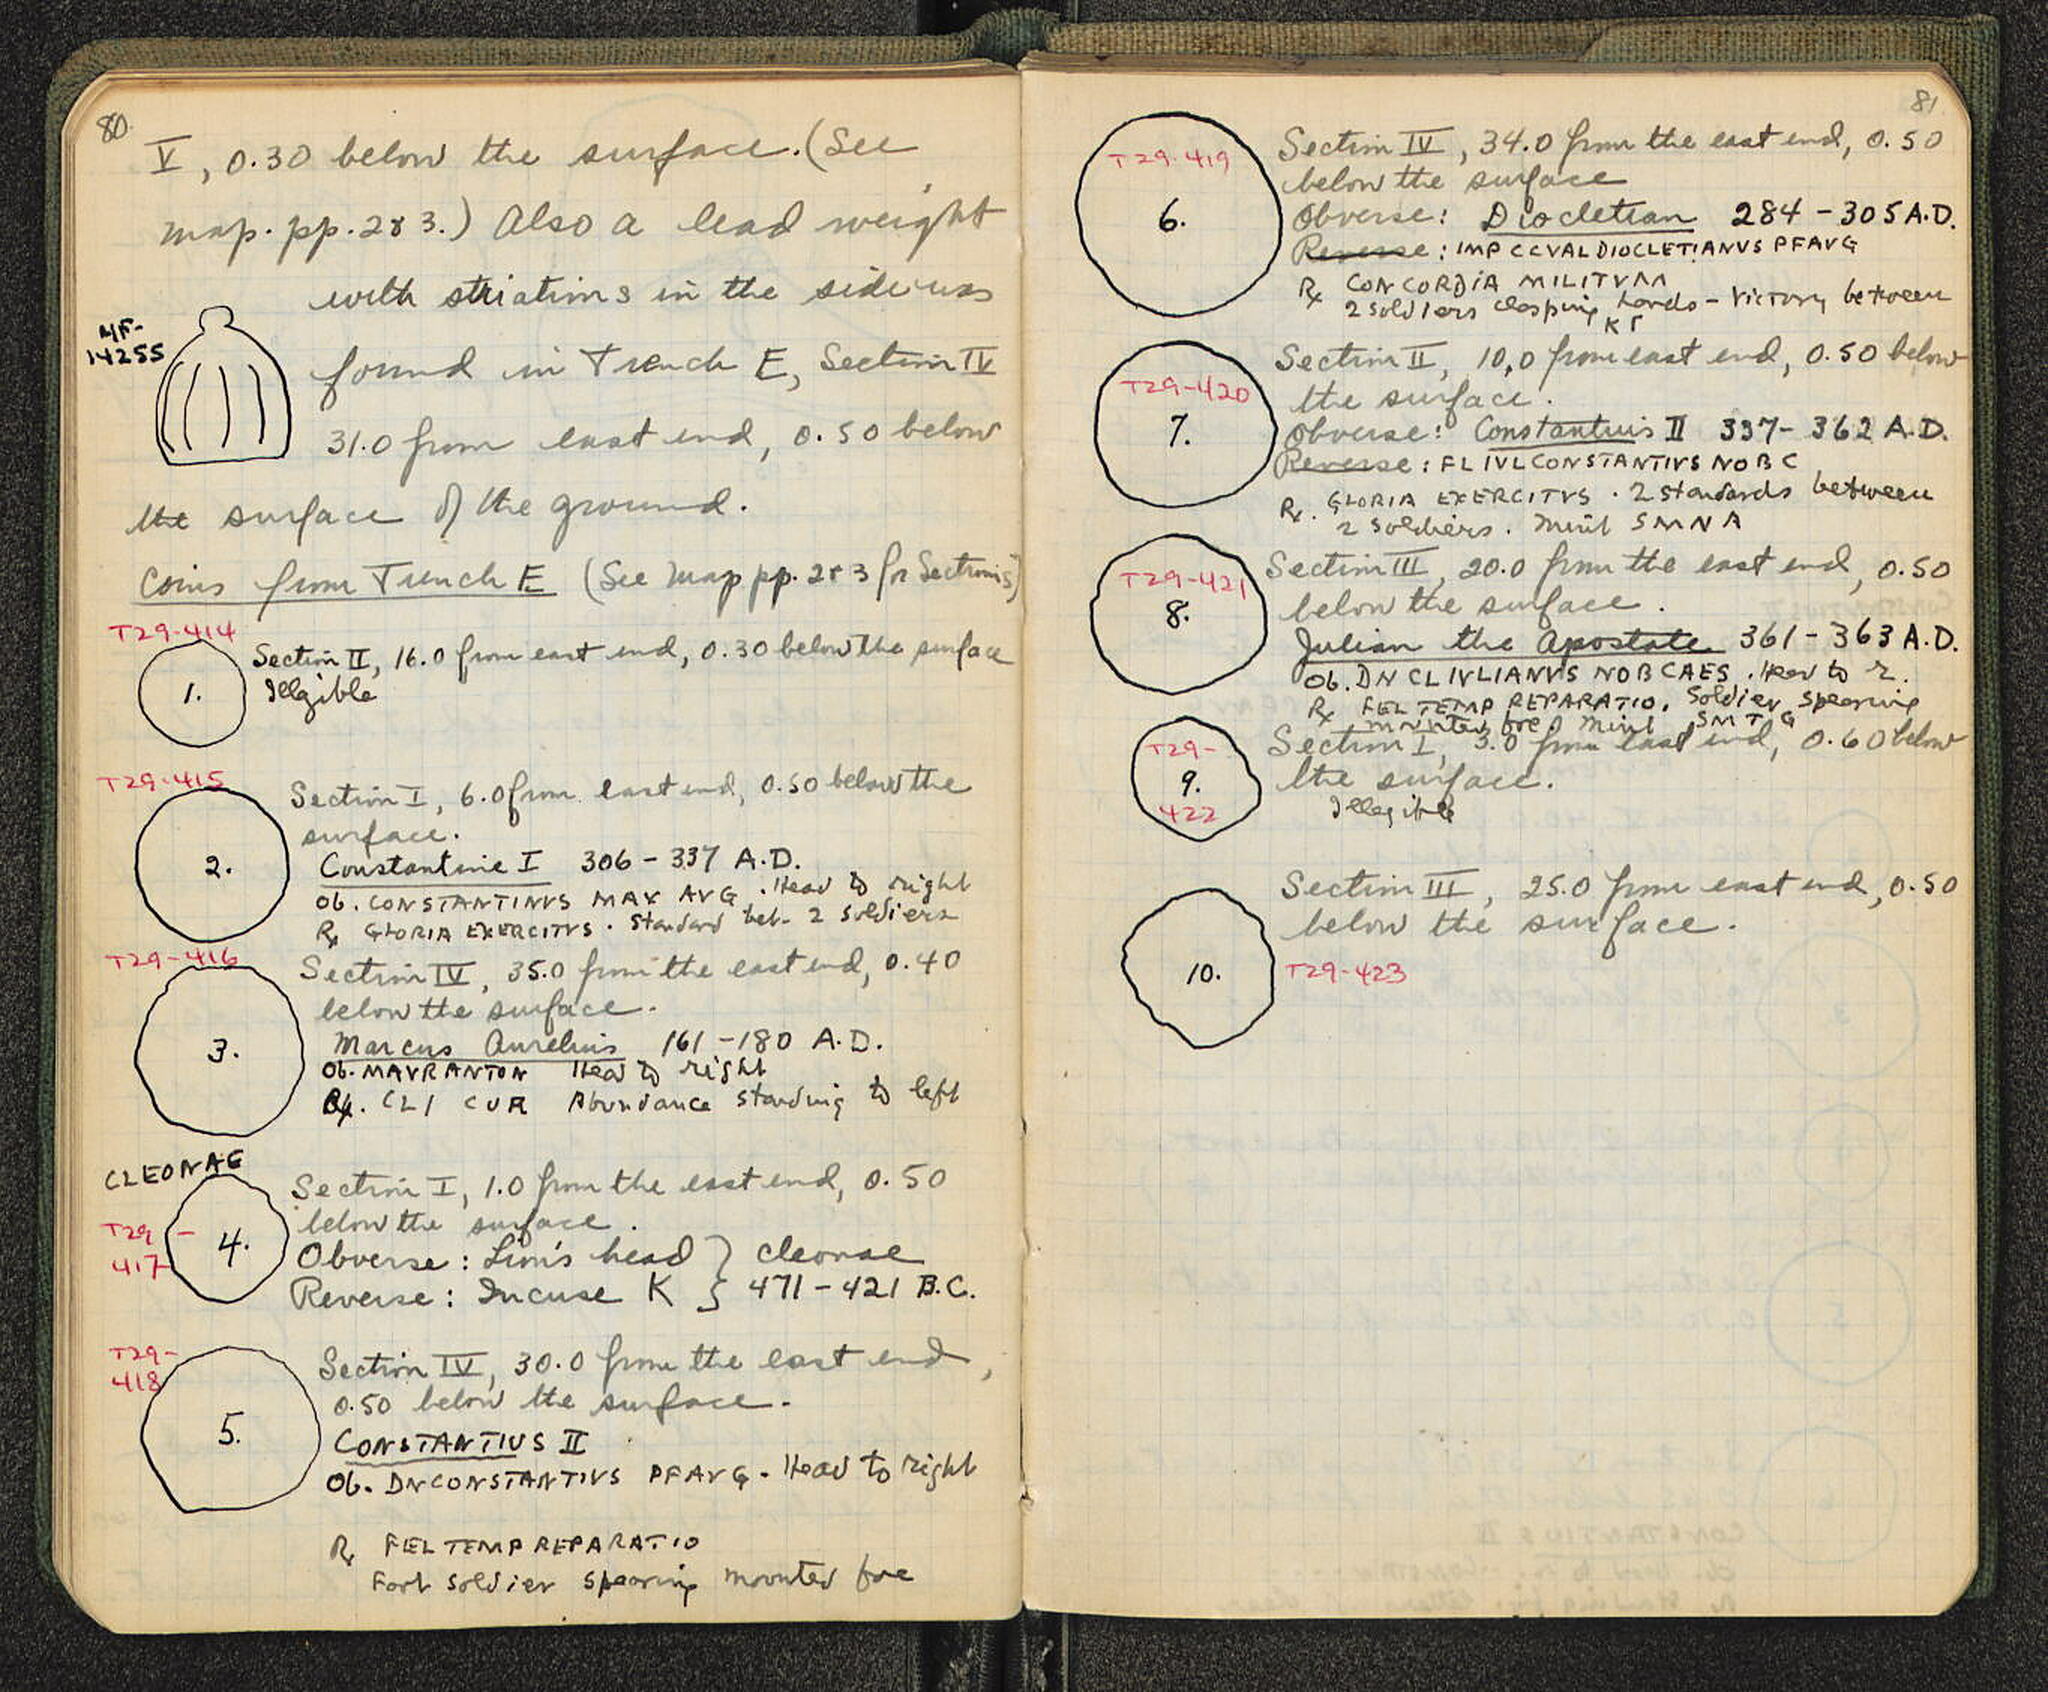 80
V, 0.30 below the surface. (See
map. pp. 2 & 3.) Also a lead weight
with striations in the side was
MF-
14255
found in Trench E, Section IV
31.0 from east end, 0.50 below
the surface of the ground.
Coins from Trench E (See Map pp. 2 & 3 for Sections)
T29-414
1.
Section II, 16.0 from east end, 0.30 below the surface
Illgible
T29-415
2.
Section I, 6.0 from east end, 0.50 below the
surface.
Constantine I 306 - 337 A.D.
Ob. CONSTANTINVS MAX AVG . Head to right
Rx GLORIA EXERCITVS . Standard bet. 2 soldiers
T29-416
3.
Section IV, 35.0 from the east end, 0.40
below the surface.
Marcus Aurelius 161 - 180 A.D.
Ob. MAVRANTON Head to right
Rx. CLI CVR Abundance standing to left
CLEONAE
T29 -
417
4.
Section I, 1.0 from the east end, 0.50
below the surface.
Obverse : Lion's head } Cleonae
Reverse : Incuse K } 471 - 421 B.C.
T29-
418
5.
Section IV, 30.0 from the east end,
0.50 below the surface.
CONSTANTIUS II
Ob. DNCONSTANTIVS PFAVG - Head to right
Rx FEL TEMP REPARATIO
Foot soldier spearing mounted foe
81
T29-419
6.
Section IV, 34.0 from the east end, 0.50
below the surface
Obverse: Diocletian 284 - 305 A.D.
Reverse : IMP CCVALDIOCLETIANVS PFAVG
Rx CONCORDIA MILITVM
2 soldiers clasping hands - Victory between
KΓ
T29-420
7.
Section II, 10,0 from east end, 0.50 below
the surface.
Obverse: Constantius II 337- 362 A.D.
Reverse : FL IVLCONSTANTIVS NOB C
Rx. GLORIA EXERCITVS . 2 standards between
2 soldiers. Mint SMNA
T29-421
8.
Section III, 20.0 from the east end, 0.50
below the surface.
Julian the Apostate 361 - 363 A.D.
Ob. DN CLIVLIANVS NOBCAES . Head to r.
Rx FEL TEMP REPARATIO. Soldier spearing
mounted foe. Mint SMTG
T29-
9.
422
Section I, 3.0 from east end, 0.60 below
the surface.
Illegible
10.
Section III, 25.0 from east end, 0.50
below the surface.
T29-423